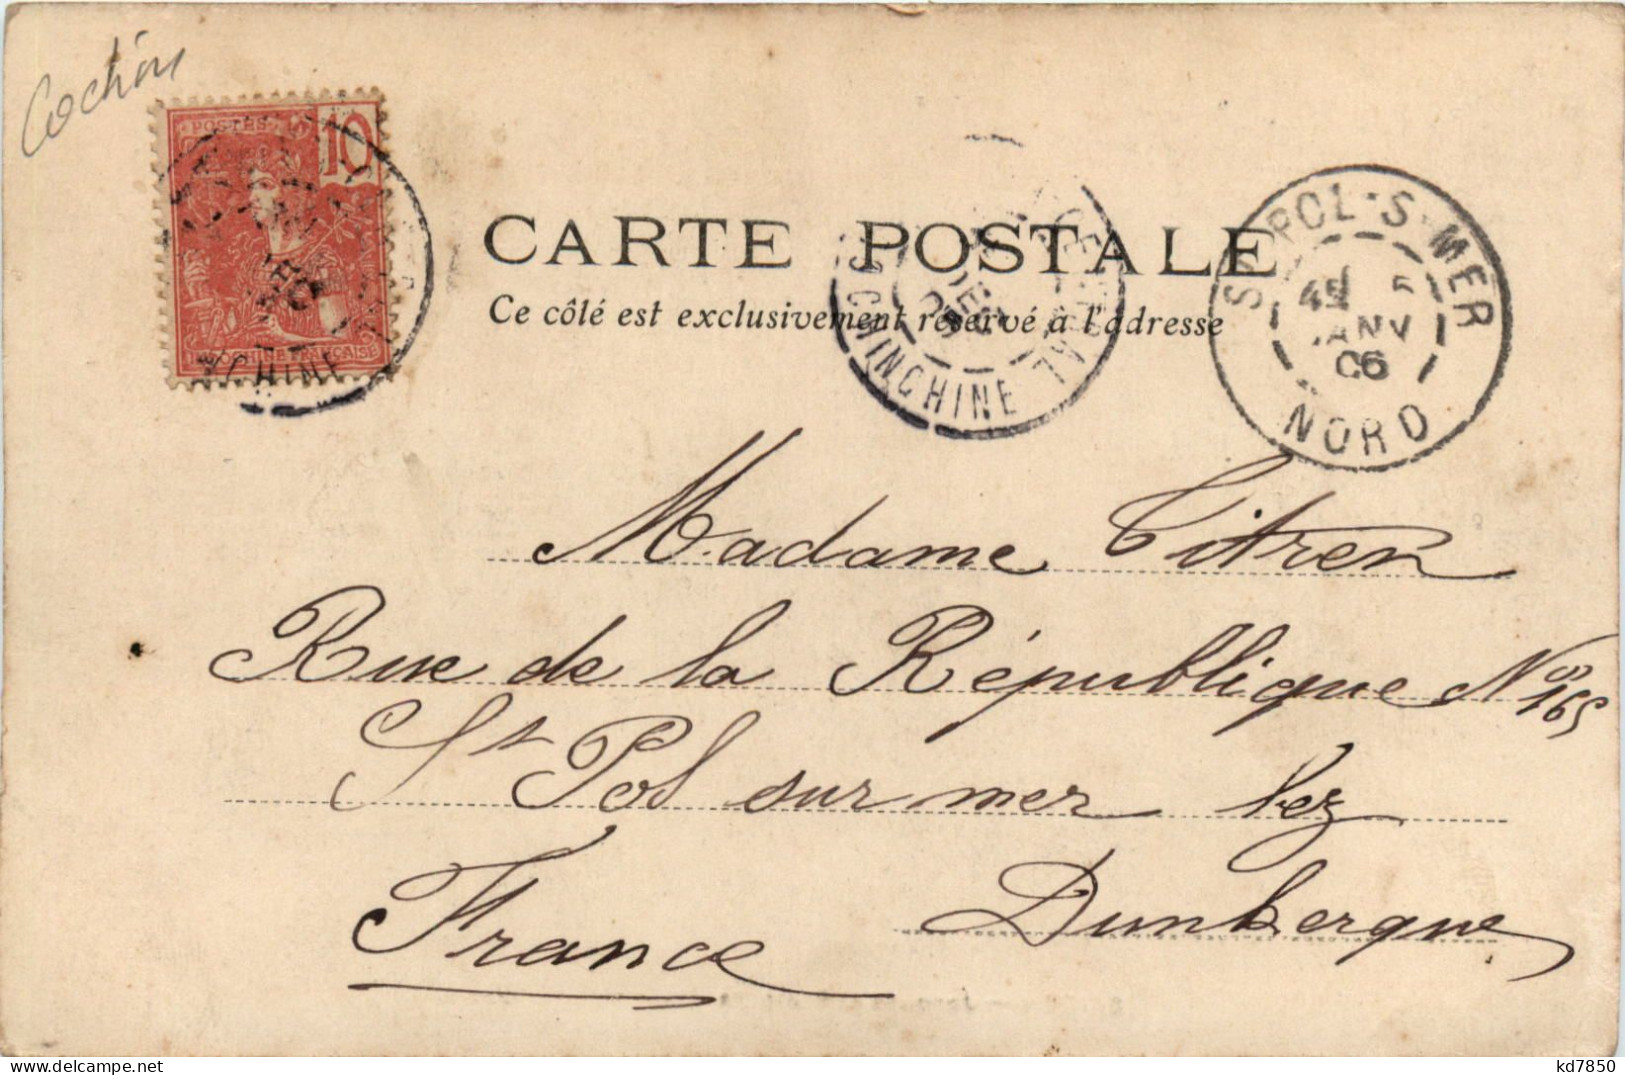 Cochin
POSTES
10
INDOCHINE FRANÇAISE
CHINE
CARTE POSTALE
Ce côté est exclusivement réservé à l'adresse
CHINCHINE
ST POL-S-MER
JANV
06
NORD
Madame Titren
Rue de la République No 165
St Pol sur mer lez
Dunkerque
France
kd7850